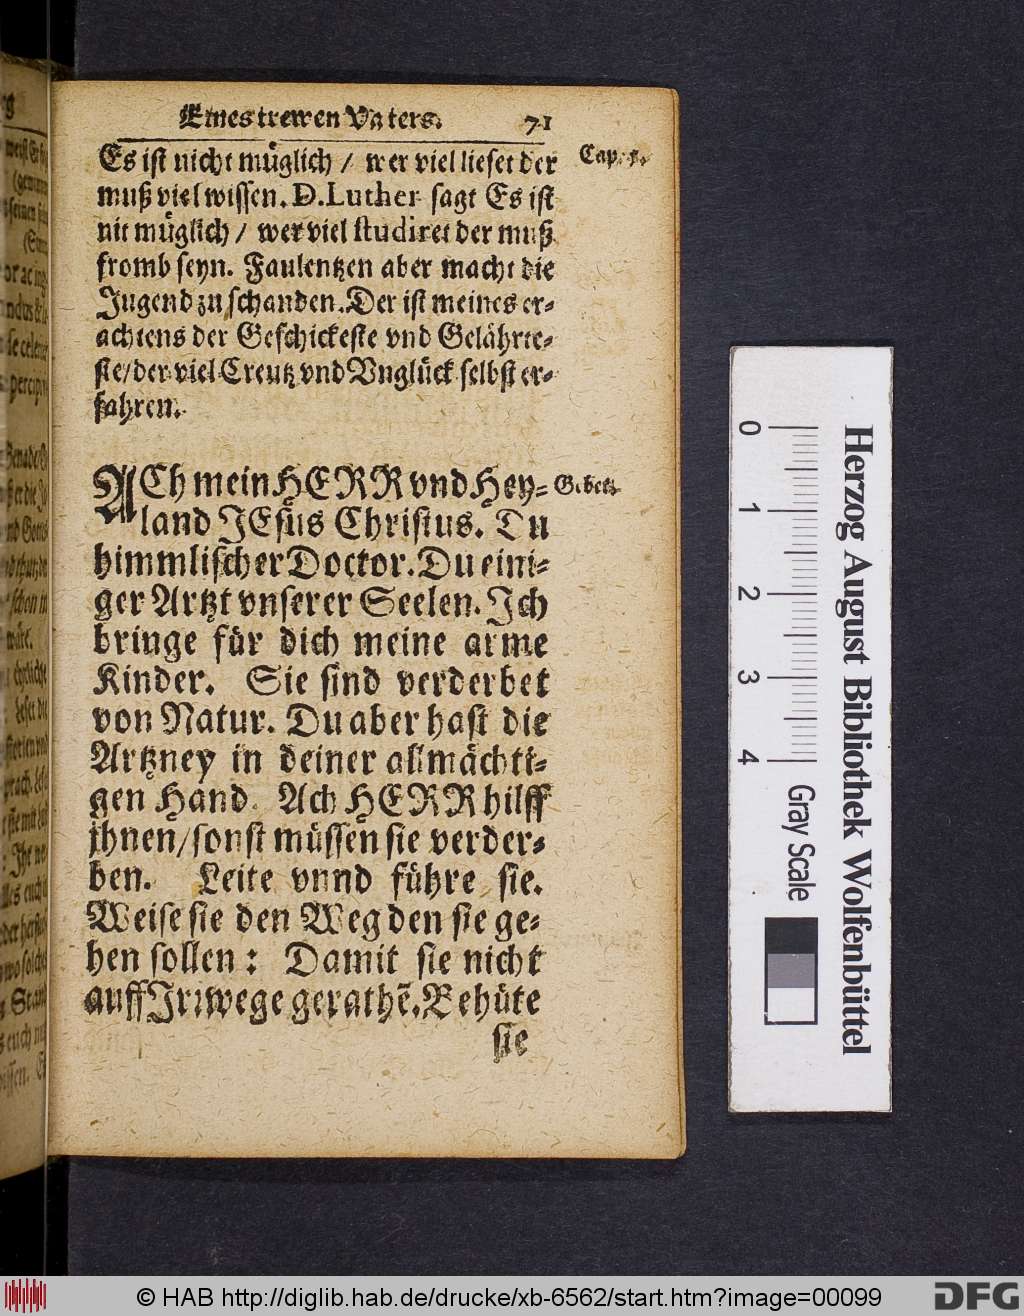 Eines trewen Vaters. 71
Es ist nicht müglich / wer viel lieset der
muß viel wissen. D. Luther sagt Es ist
nit müglich / wer viel studiret der muß
fromb seyn. Faulentzen aber macht die
Jugend zu schanden. Der ist meines er-
achtens der Geschickeste vnd Gelährte-
ste / der viel Creutz vnd Vnglück selbst er-
fahren.
ACh mein HERR vnd Hey-
land JEsus Christus. Du
himmlischer Doctor. Du eini-
ger Artzt vnserer Seelen. Ich
bringe für dich meine arme
Kinder. Sie sind verderbet
von Natur. Du aber hast die
Artzney in deiner allmächti-
gen Hand. Ach HERR hilff
jhnen / sonst müssen sie verder-
ben. Leite vnnd führe sie.
Weise sie den Weg den sie ge-
hen sollen: Damit sie nicht
auff Irrwege gerathē. Behüte
sie
Cap.
Gebet.
0 1 2 3 4
Gray Scale
Herzog August Bibliothek Wolfenbüttel
© HAB http://diglib.hab.de/drucke/xb-6562/start.htm?image=00099
DFG